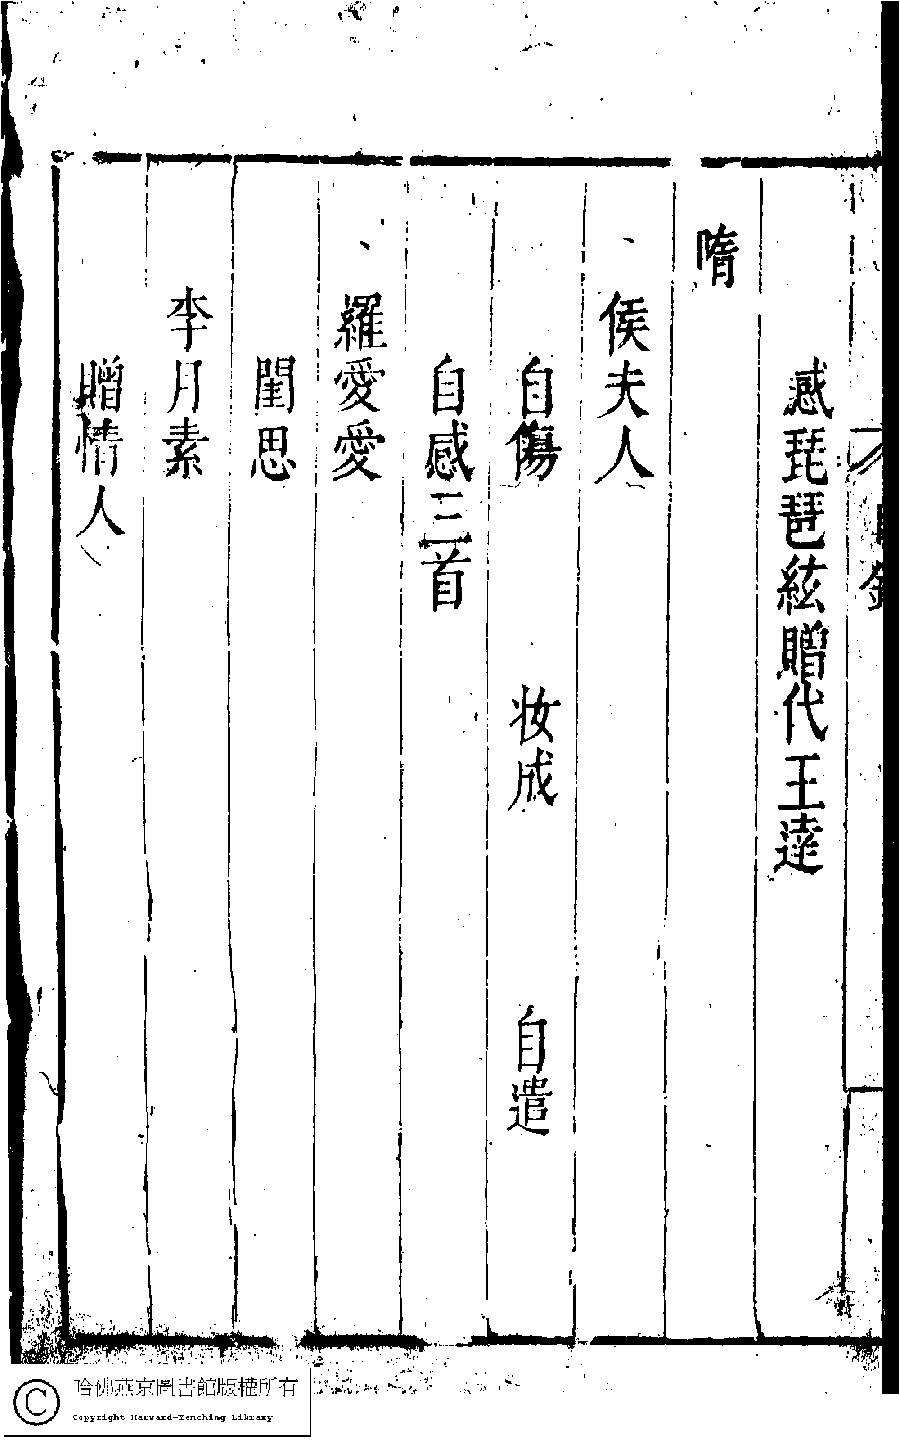 感琵琶絃贈代王達
隋
侯夫人
自傷 妝成 自遣
自感三首
羅愛愛
閨思
李月素
贈情人
哈佛燕京圖書館版權所有
Copyright Harvard-Yenching Library